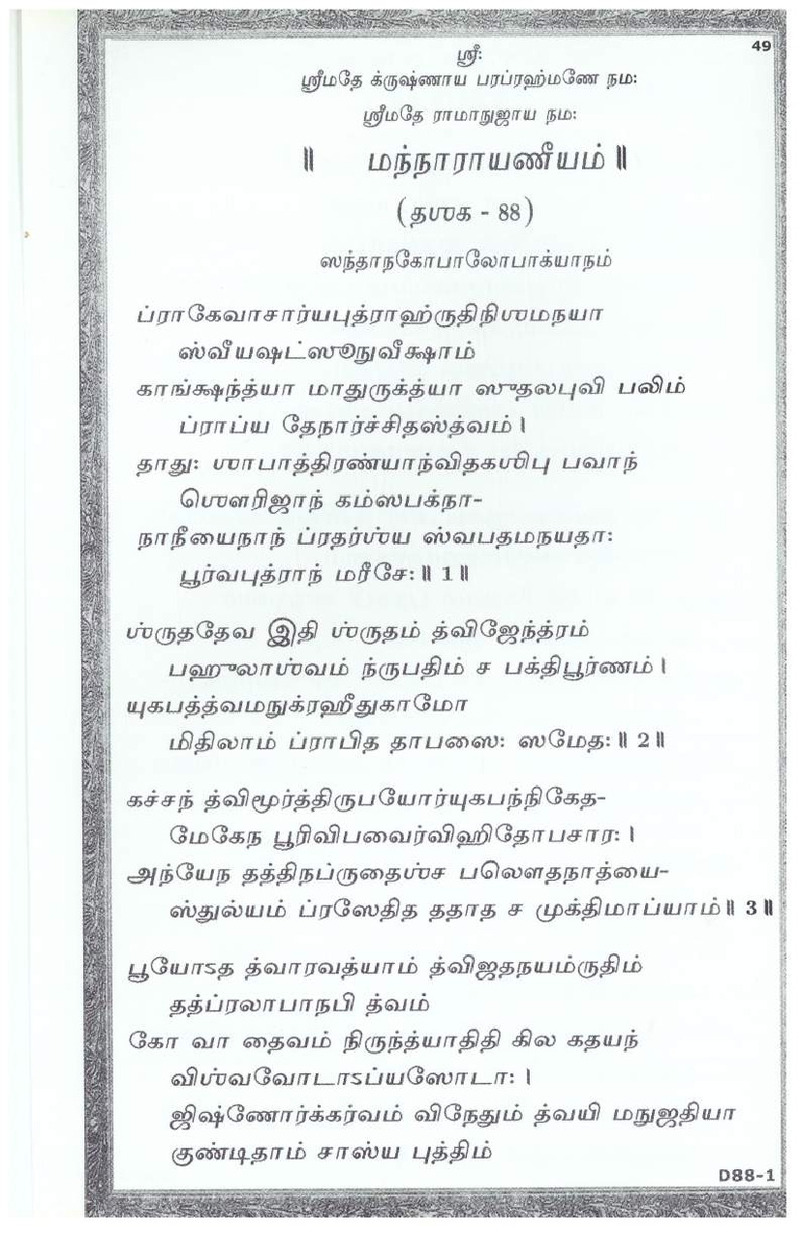 49
ஸ்ரீ:
ஸ்ரீமதே க்ருஷ்ணாய பரப்ரஹ்மணே நம:
ஸ்ரீமதே ராமாநுஜாய நம:
॥ மந்நாராயணீயம் ॥
(தஶக - 88)
ஸந்தாநகோபாலோபாக்யாநம்
ப்ராகேவாசார்யபுத்ராஹ்ருதிநிஶமநயா
ஸ்வீயஷட்ஸூநுவீக்ஷாம்
காங்க்ஷந்த்யா மாதுருக்த்யா ஸுதலபுவி பலிம்
ப்ராப்ய தேநார்ச்சிதஸ்த்வம் ।
தாது: ஶாபாத்திரண்யாந்விதகஶிபு பவாந்
ஶௌரிஜாந் கம்ஸபக்நா-
நாநீயைநாந் ப்ரதர்ஶ்ய ஸ்வபதமநயதா:
பூர்வபுத்ராந் மரீசே: ॥ 1 ॥
ஶ்ருததேவ இதி ஶ்ருதம் த்விஜேந்த்ரம்
பஹுலாஶ்வம் ந்ருபதிம் ச பக்திபூர்ணம் ।
யுகபத்த்வமநுக்ரஹீதுகாமோ
மிதிலாம் ப்ராபித தாபஸை: ஸமேத: ॥ 2 ॥
கச்சந் த்விமூர்த்திருபயோர்யுகபந்நிகேத-
மேகேந பூரிவிபவைர்விஹிதோபசார: ।
அந்யேந தத்திநப்ருதைஶ்ச பலௌதநாத்யை-
ஸ்துல்யம் ப்ரஸேதித ததாத ச முக்திமாப்யாம் ॥ 3 ॥
பூயோऽத த்வாரவத்யாம் த்விஜதநயம்ருதிம்
தத்ப்ரலாபாநபி த்வம்
கோ வா தைவம் நிருந்த்யாதிதி கில கதயந்
விஶ்வவோடாऽப்யஸோடா: ।
ஜிஷ்ணோர்க்கர்வம் விநேதும் த்வயி மநுஜதியா
குண்டிதாம் சாஸ்ய புத்திம்
D88-1